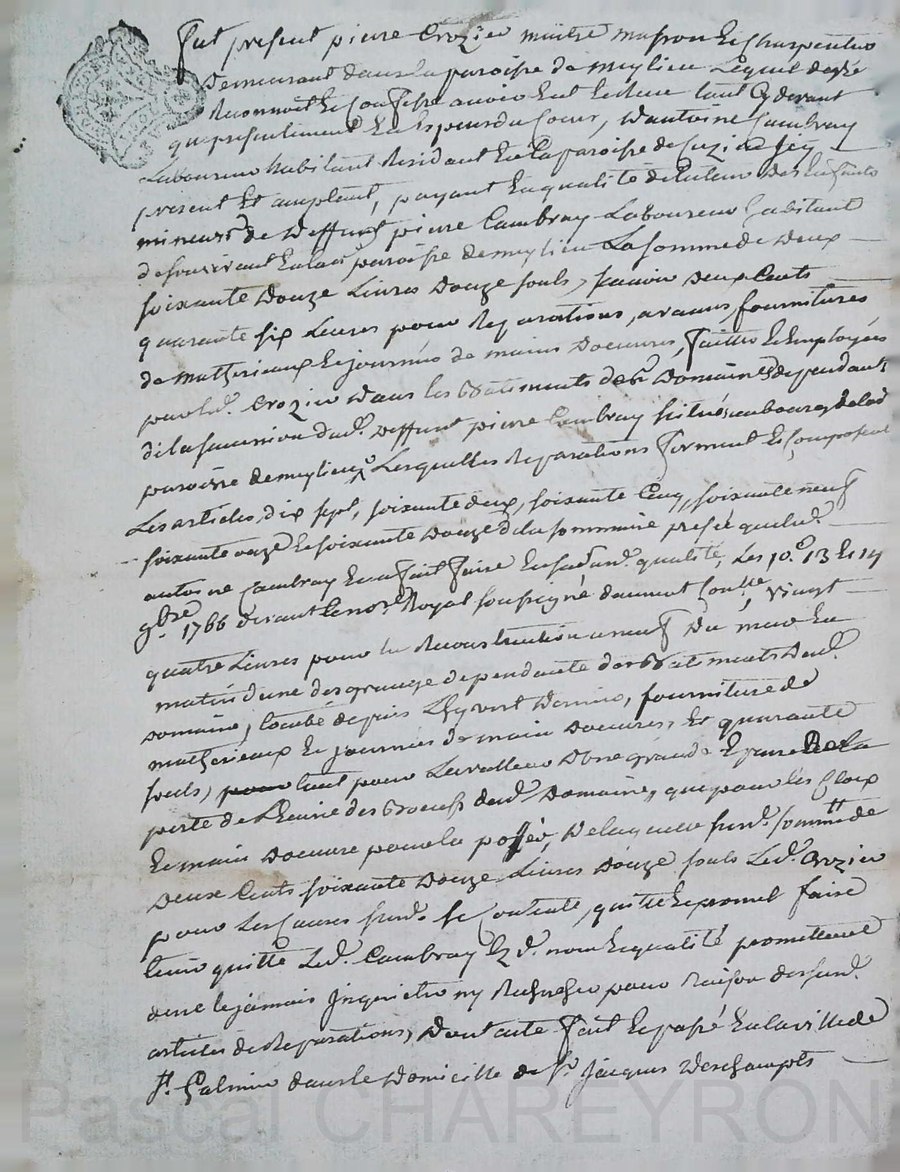 fut présent pierre Crozier maitre masson et Charpentier
demeurant dans la paroisse de meylieu Lequel de gré
Reconnoit et Confesse avoir Eut et Receu tant Cy devant
que presentement En Especes du Cours, d'antoine Cambray
Laboureur habitant Residant En la paroisse de Cuzieu Icy
present et acceptant, payant En qualité de tuteur des Enfants
mineurs de deffunt pierre Cambray Laboureur habitant
de son vivant En lad. paroisse de meylieu La somme de deux
soixante douze Livres douze sols, scavoir deux Cents
quarante six Livres pour Reparations, avances fournitures
de matherieaux Et journées de mains doeuvres, faittes Et Employées
par led. Crozier dans les Batiments des Domaines dependants
de la succession dud. deffunt pierre Cambray situés au bourg de lad.
paroisse de meylieu, Lesquelles Reparations forment Et Composent
Les articles, dix sept, soixante deux, soixante Cinq, soixante neuf
soixante onze Et soixante douze de la sommaire prisée que led.
antoine Cambray En a fait faire En sad. qualité, Les 10e 13 Et 14
9bre 1766 devant Le nore Royal soussigné dument Contlé, vingt
quatre Livres pour la Reconstruction a neuf Du mur En
matin d'une des granges dependante des Batiments dud.
domaine, tombé depuis Lhyvert Dernier, fourniture de
matherieaux Et journées de main Doeuvres, Et quarante
sols, pour tant pour La valleur d'une grande Equerre de la
porte de L'Ecurie des Boeufs dud. Domaine, que pour les Cloux
Et main Doeuvre pour la poser, De laquelle susd. somme de
Deux Cents soixante Douze Livres Douze sols Led. Crozier
pour Les Causes susd. se Contente, quitte Et promet faire
tenir quitte Led. Cambray Ez d. nom Et qualité promettant
de ne le jamais Inquietter ny Rechercher pour Raison des susd.
articles de Reparations, Dont acte fait Et passé En la ville de
St. Galmier dans le Domicille de Sr. jacques Deschamps
Pascal CHAREYRON